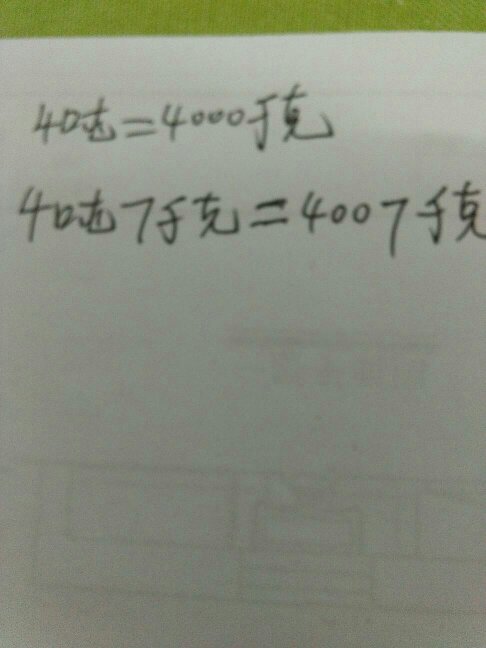 4吨=4000千克
4吨7千克=4007千克